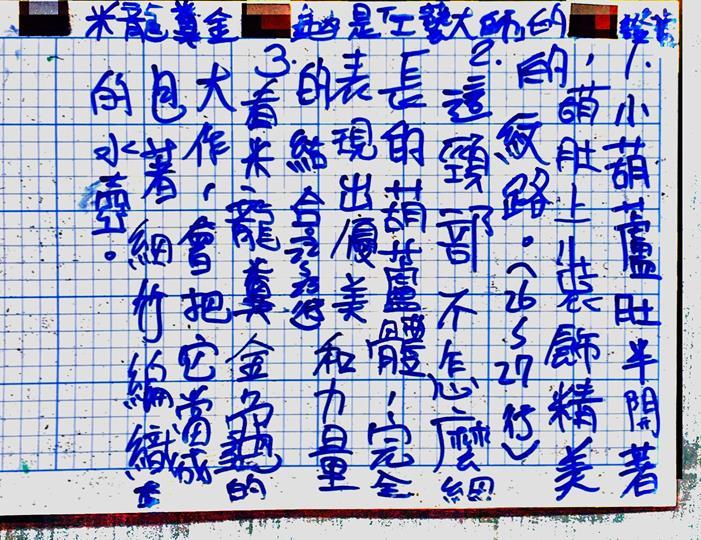 米龍龔金 是工藝大師的
1.小葫蘆肚半開著
，萌肚上裝飾精美
的紋路。(26~27行)
2.這頸部不怎麼細
長的葫蘆體，完全
表現出優美和力量
的結合
3.看米龍龔金龜的
大作，會把它當成
包著細竹編織
的水壺。